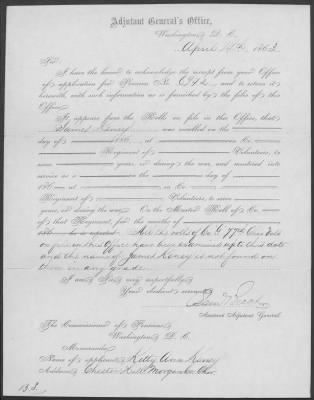 Adjutant General's Office,
Washington, D. C.
April 4th, 1863
Sir:
I have the honor to acknowledge the receipt from your Office
of application for Pension No. 6942, and to return it
herewith, with such information as is furnished by the files of this
Office.
It appears from the Rolls on file in this Office, that
James Kensy was enrolled on the
day of 186, at in Co.
Regiment of Volunteers, to
serve years, or during the war, and mustered into
service as a on the day of
186, at in Co.
Regiment of Volunteers, to serve
years, or during the war. On the Muster Roll of Co.
of that Regiment, for the months of
186, he is reported All the rolls of Co. G 77th Ohio Vols
on file in this Office have been examined up to this date
and the name of James Kensy is not found on
them in any grade.
I am, Sir, very respectfully,
Your obedient servant,
Sam'l Breck
Assistant Adjutant General.
The Commissioner of Pensions,
Washington, D. C.
Memoranda:
Name of applicant, Kitty Ann Kensy
Address, Chester Hill Morgan Co. Ohio